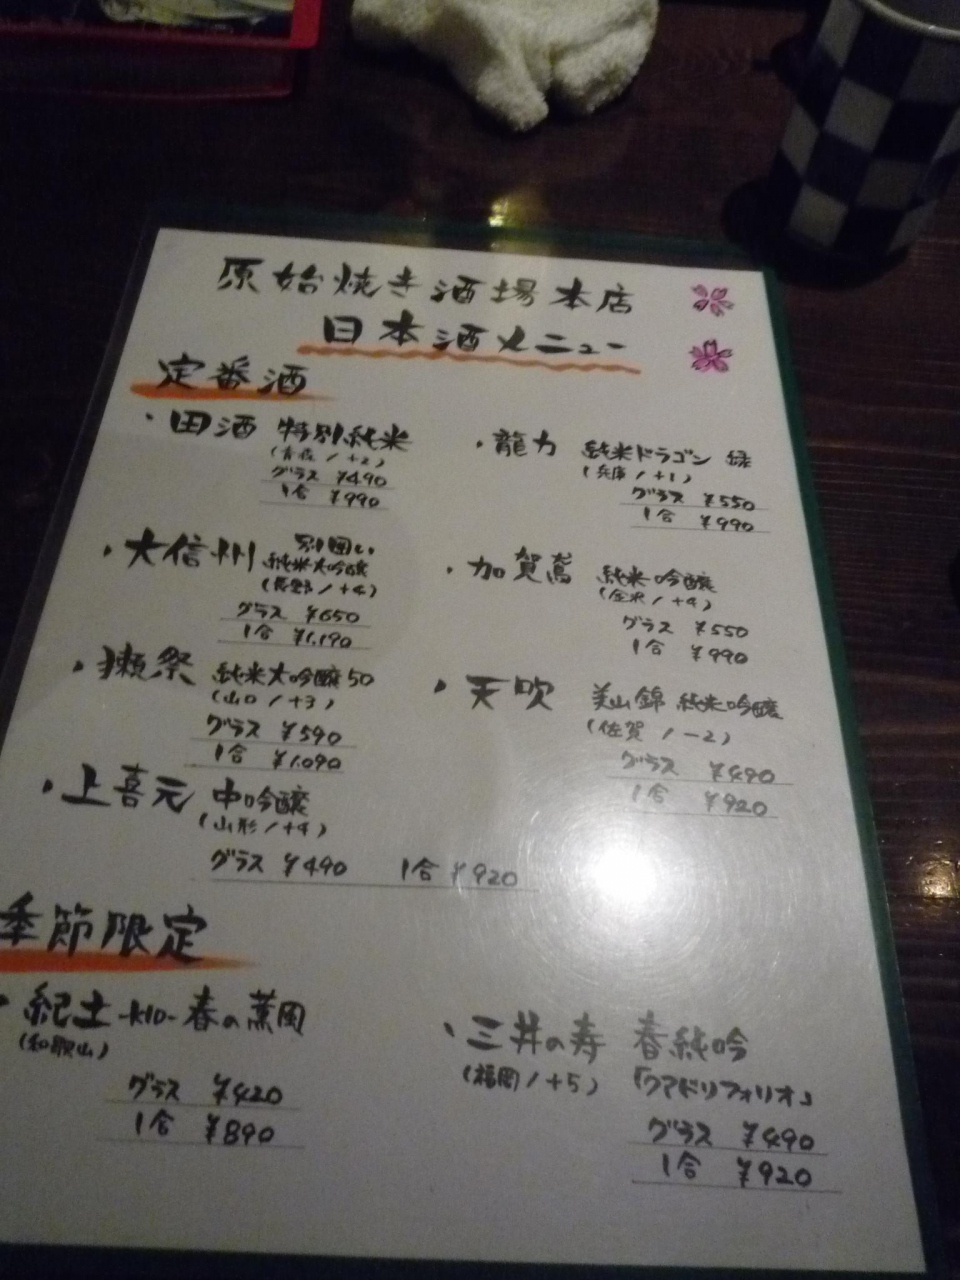 原始焼き酒場本店
日本酒メニュー
定番酒
・田酒 特別純米
(青森/+2)
グラス ¥490
1合 ¥990
・龍力 純米ドラゴン 緑
(兵庫/+1)
グラス ¥550
1合 ¥990
・大信州 別囲い
純米大吟醸
(長野/+4)
グラス ¥650
1合 ¥1,190
・加賀鳶 純米吟醸
(金沢/+4)
グラス ¥550
1合 ¥990
・獺祭 純米大吟醸50
(山口/+3)
グラス ¥590
1合 ¥1,090
・天吹 美山錦 純米吟醸
(佐賀/-2)
グラス ¥490
1合 ¥920
・上喜元 中吟醸
(山形/+4)
グラス ¥490 1合 ¥920
季節限定
・紀土-KID-春の薫風
(和歌山)
グラス ¥420
1合 ¥890
・三井の寿 春純吟
(福岡/+5) 「クアドリフォリオ」
グラス ¥490
1合 ¥920